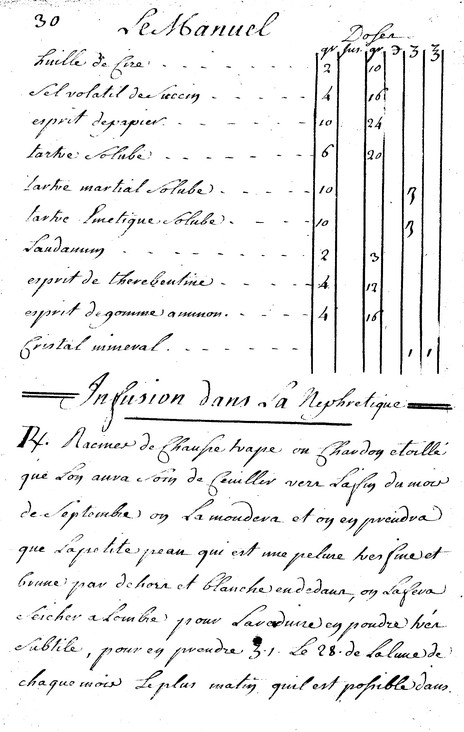 30 Le Manuel
Doses
gr jus. gr ʒ ℥ ℥
huille de Cire 2 10
Sel volatil de Succin 4 16
esprit de papier 10 24
tartre Soluble 6 20
tartre martial Soluble 10 ʒ
tartre Emetique Soluble 10 ʒ
Laudanum 2 3
esprit de therebentine 4 12
esprit de gomme ammon. 4 16
Cristal mineral 1 1
Infusion dans La Nephretique
℞. Racines de Chausse trape ou Chardon etoillé
que Lon aura Soin de Ceuiller vers Lafin du mois
de Septembre on Lamondera et on en prendra
que Lapetite peau qui est une pelure tres fine et
brune par dehors et blanche en dedans, on Lafera
Seicher a Lombre pour Lareduire en poudre trés
Subtile, pour en prendre ʒ. 1. Le 28. de Lalune de
chaque mois Le plus matin quil est possible dans